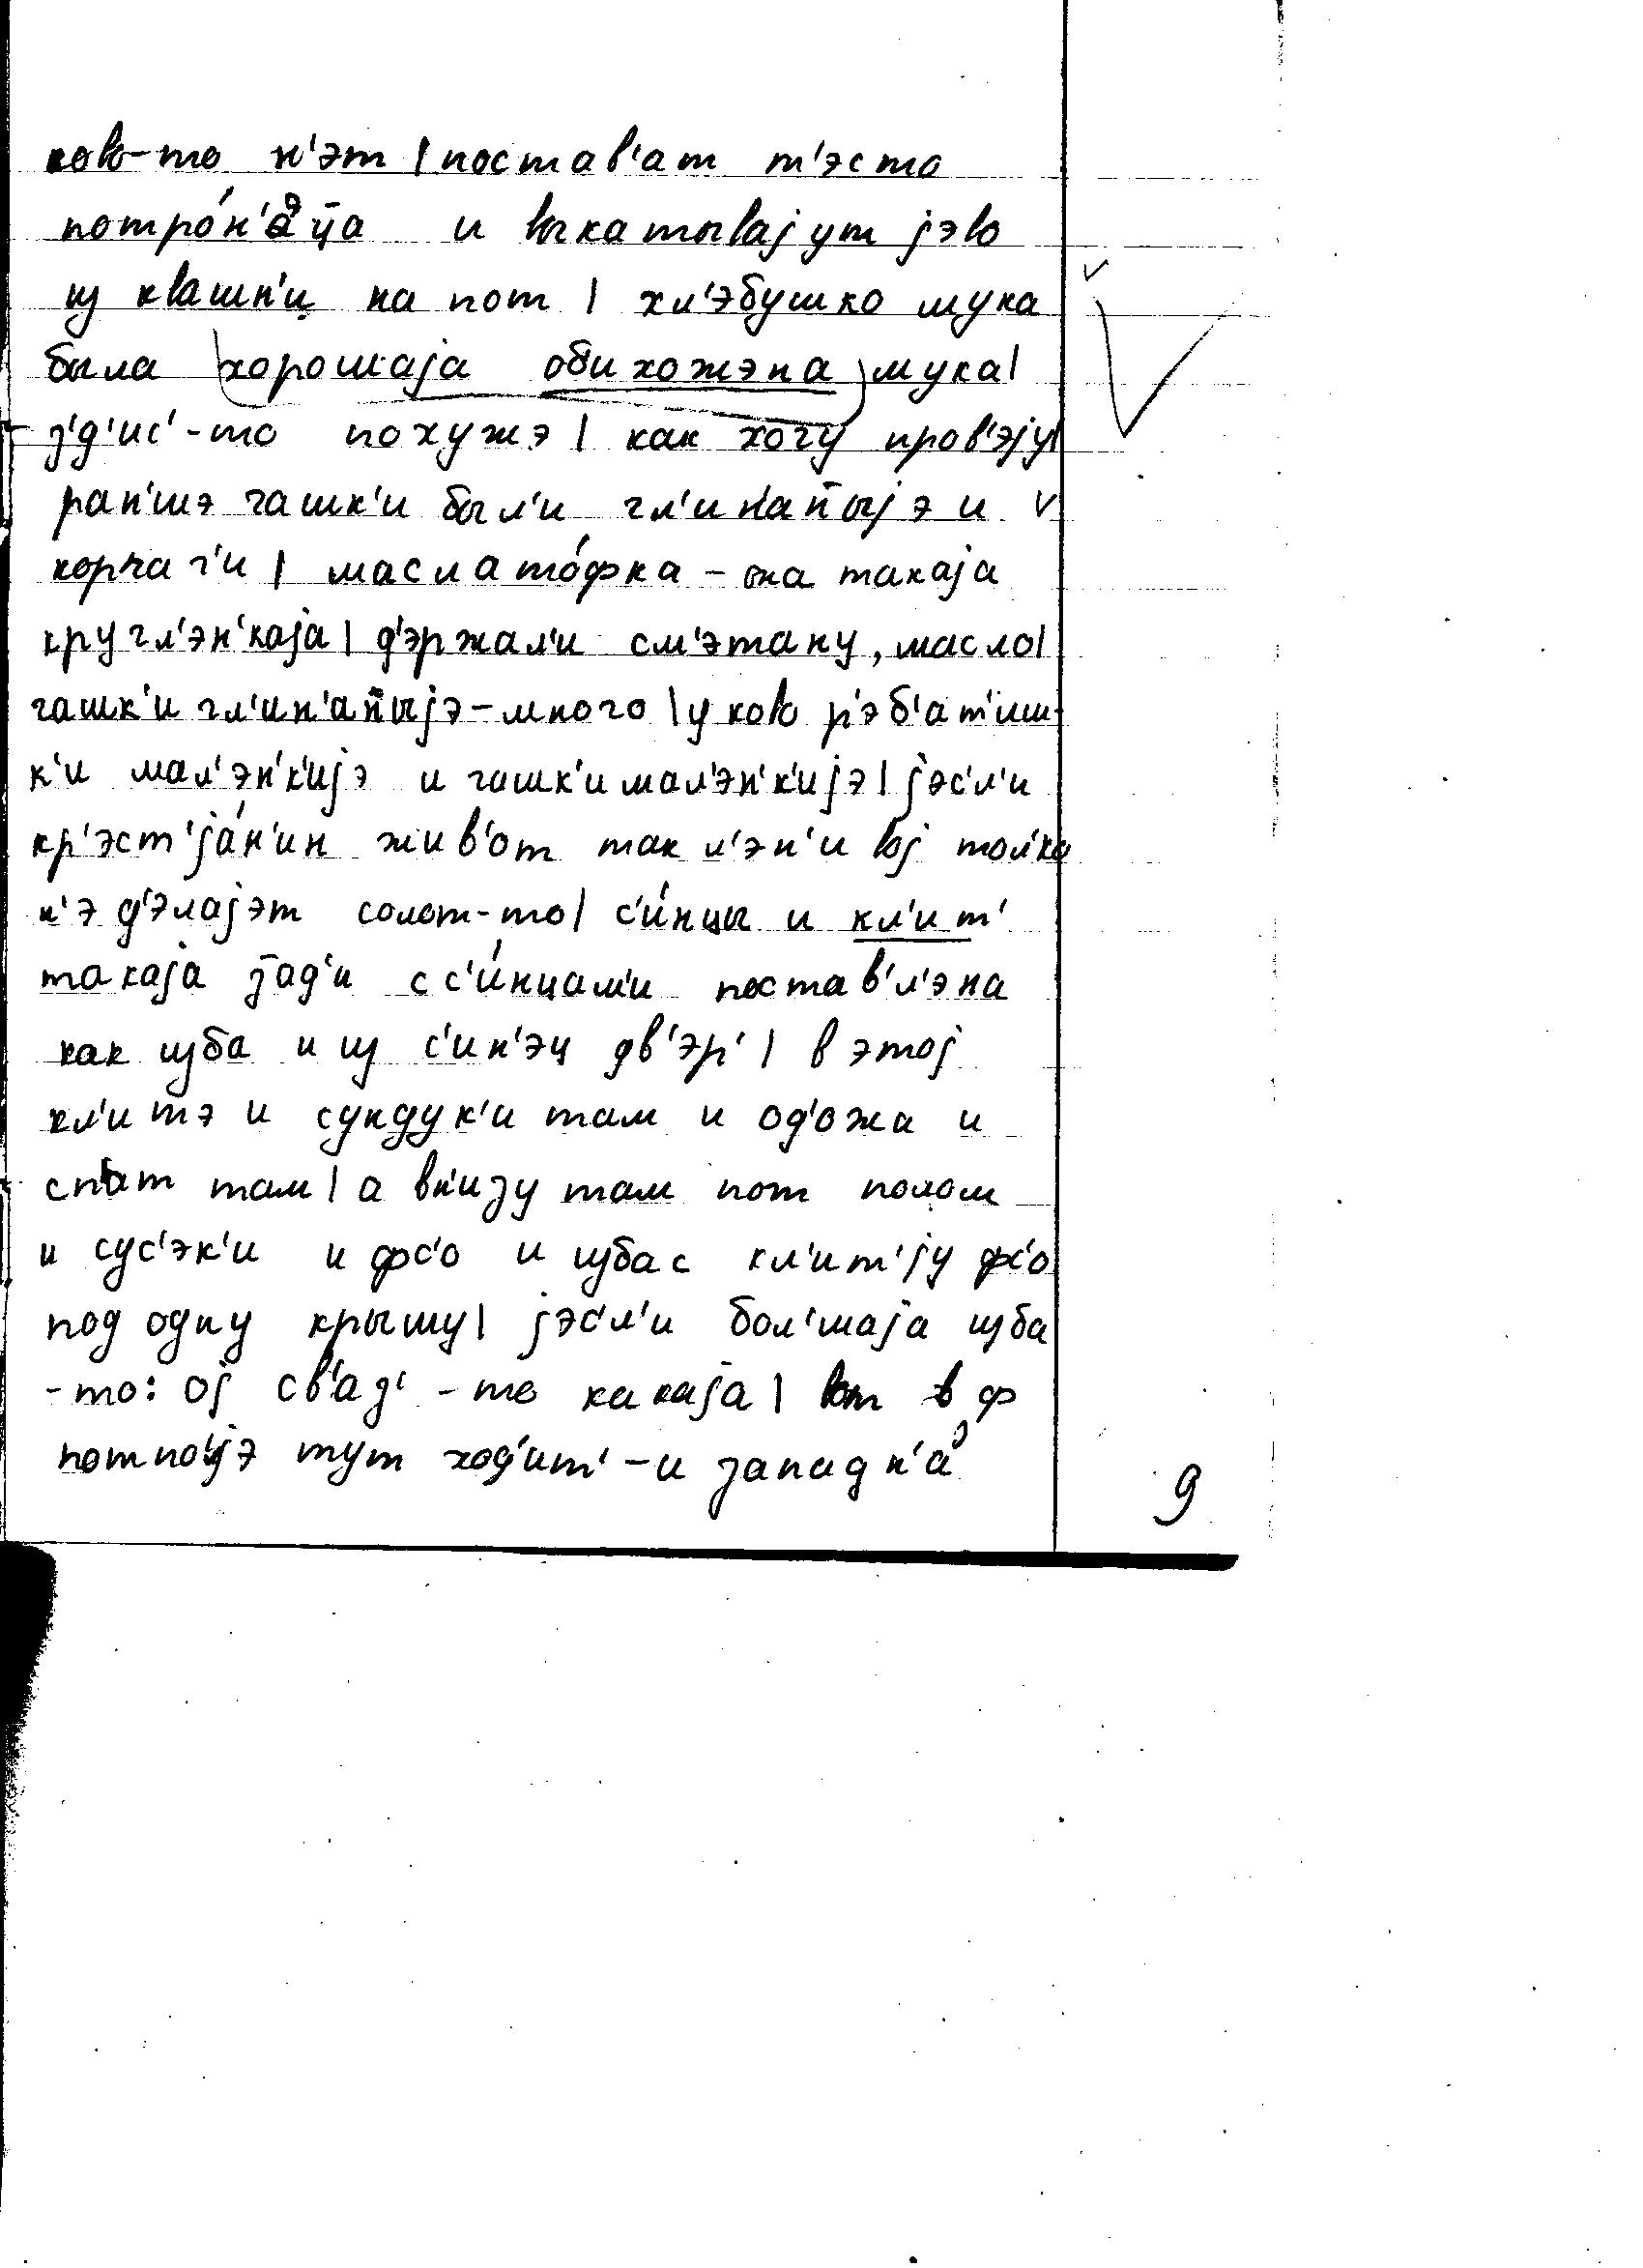 ково-то н'эт | постав'ат т'эсто
потро́н'аэц̄а и выкатывајут јэво
из квашн'и на пот | хл'эбушко мука
была хорошаја обихожэна мука|
з'д'ис'-то похужэ | как хочу пров'эју|
ран'шэ чашк'и был'и гл'ин'ан̄ыјэ и
корчаг'и | маслато́фка – она такаја
кругл'эн'каја | д'эржал'и см'этану, масло|
чашк'и гл'ин'ан̄ыјэ – много | у ково р'эб'ат'иш-
к'и мал'эн'к'ијэ и чашк'и мал'эн'к'ијэ | јэс'л'и
кр'эст'ја́н'ин жив'от так л'эн'ивој тол'ко
н'э д'элајэт солот-то | с'и́нцы и кл'ит'
такаја з̄ад'и с с'и́нцам'и поставл'эна
как изба и из с'ин'эц дв'эр' | в этој
кл'итэ и сундук'и там и од'ожа и
спат там | а вн'изу там пот полом
и сус'эк'и и фс'о и изба с кл'ит'ју фс'о
под одну крышу | јэс'л'и бол'шаја изба
-то: ој св'ад'-то какаја | вот в ф
потпол'јэ тут ход'ит' – и западн'а
9